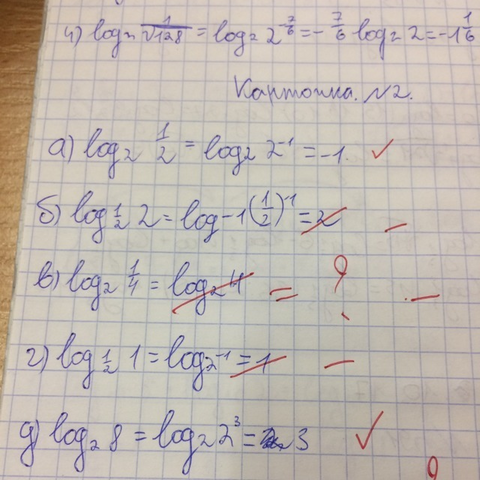 ч) log₂ 1/⁶√128 = log₂ 2^(-7/6) = -7/6 log₂ 2 = -1 1/6
Карточка. №2.
а) log₂ 1/2 = log₂ 2⁻¹ = -1. ✓
б) log_(1/2) 2 = log-1 (1/2)⁻¹ = 2 —
в) log₂ 1/4 = log₂ 4 = ? —
г) log_(1/2) 1 = log₂⁻¹ = 1 —
д) log₂ 8 = log₂ 2³ = 3 ✓